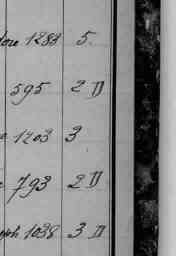 1288 5.
595 2 II
1203 3
793 2 II
1038 3 II